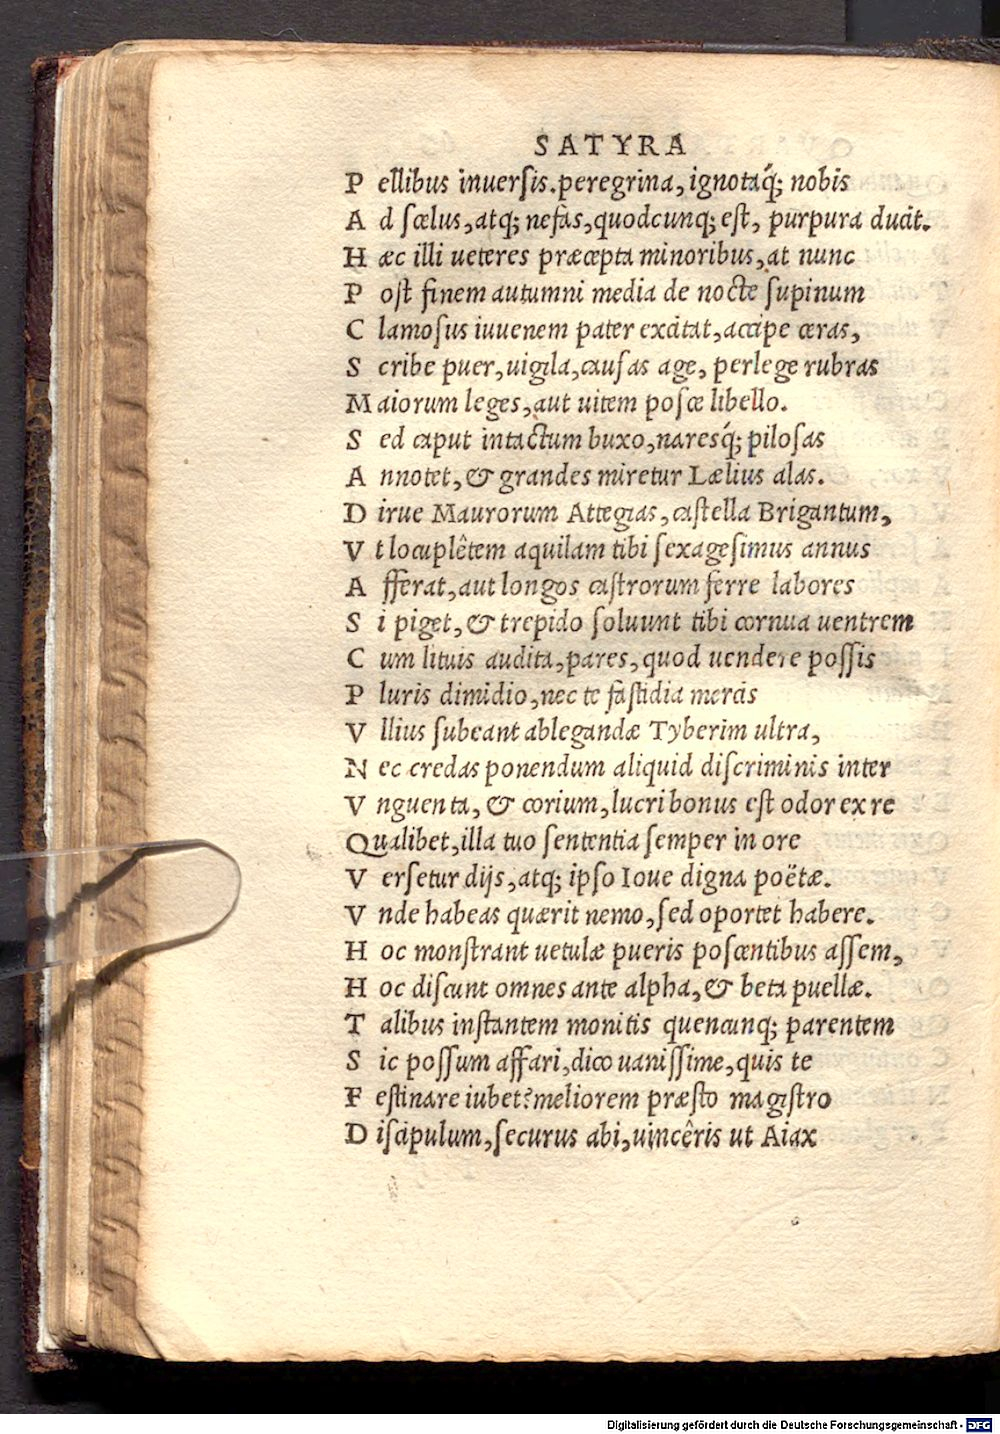 SATYRA
P ellibus inuersis.peregrina, ignotaq́; nobis
A d scelus, atq; nefas, quodcunq; est, purpura ducit.
H æc illi ueteres præcepta minoribus, at nunc
P ost finem autumni media de nocte supinum
C lamosus iuuenem pater excitat, accipe ceras,
S cribe puer, uigila, causas age, perlege rubras
M aiorum leges, aut uitem posce libello.
S ed caput intactum buxo, naresq́; pilosas
A nnotet, & grandes miretur Lælius alas.
D irue Maurorum Attegias, castella Brigantum,
V t locuplêtem aquilam tibi sexagesimus annus
A fferat, aut longos castrorum ferre labores
S i piget, & trepido soluunt tibi cornua uentrem
C um lituis audita, pares, quod uendere possis
P luris dimidio, nec te fastidia mercis
V llius subeant ablegandæ Tyberim ultra,
N ec credas ponendum aliquid discriminis inter
V nguenta, & corium, lucri bonus est odor ex re
Qualibet, illa tuo sententia semper in ore
V ersetur dijs, atq; ipso Ioue digna poëtæ.
V nde habeas quærit nemo, sed oportet habere.
H oc monstrant uetulæ pueris poscentibus assem,
H oc discunt omnes ante alpha, & beta puellæ.
T alibus instantem monitis quencunq; parentem
S ic possum affari, dico uanissime, quis te
F estinare iubet? meliorem præsto magistro
D iscipulum, securus abi, uincêris ut Aiax
Digitalisierung gefördert durch die Deutsche Forschungsgemeinschaft - DFG